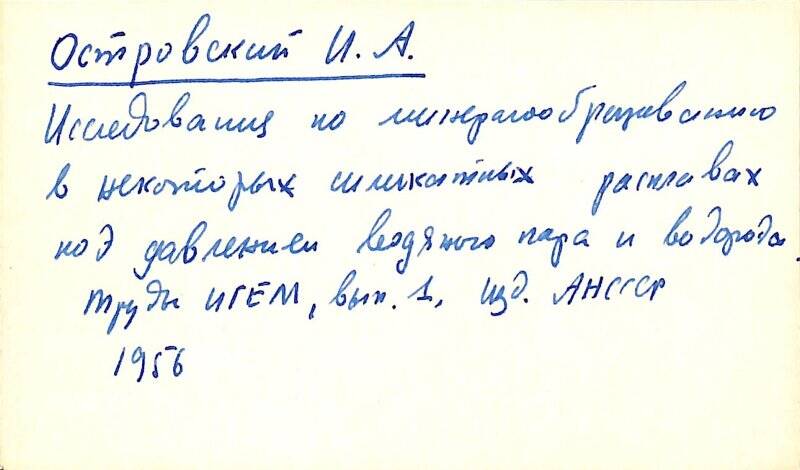 Островский И. А.
Исследования по минералообразованию
в некоторых силикатных расплавах
под давлением водяного пара и водорода.
Труды ИГЕМ, вып. 1, изд. АНСССР
1956